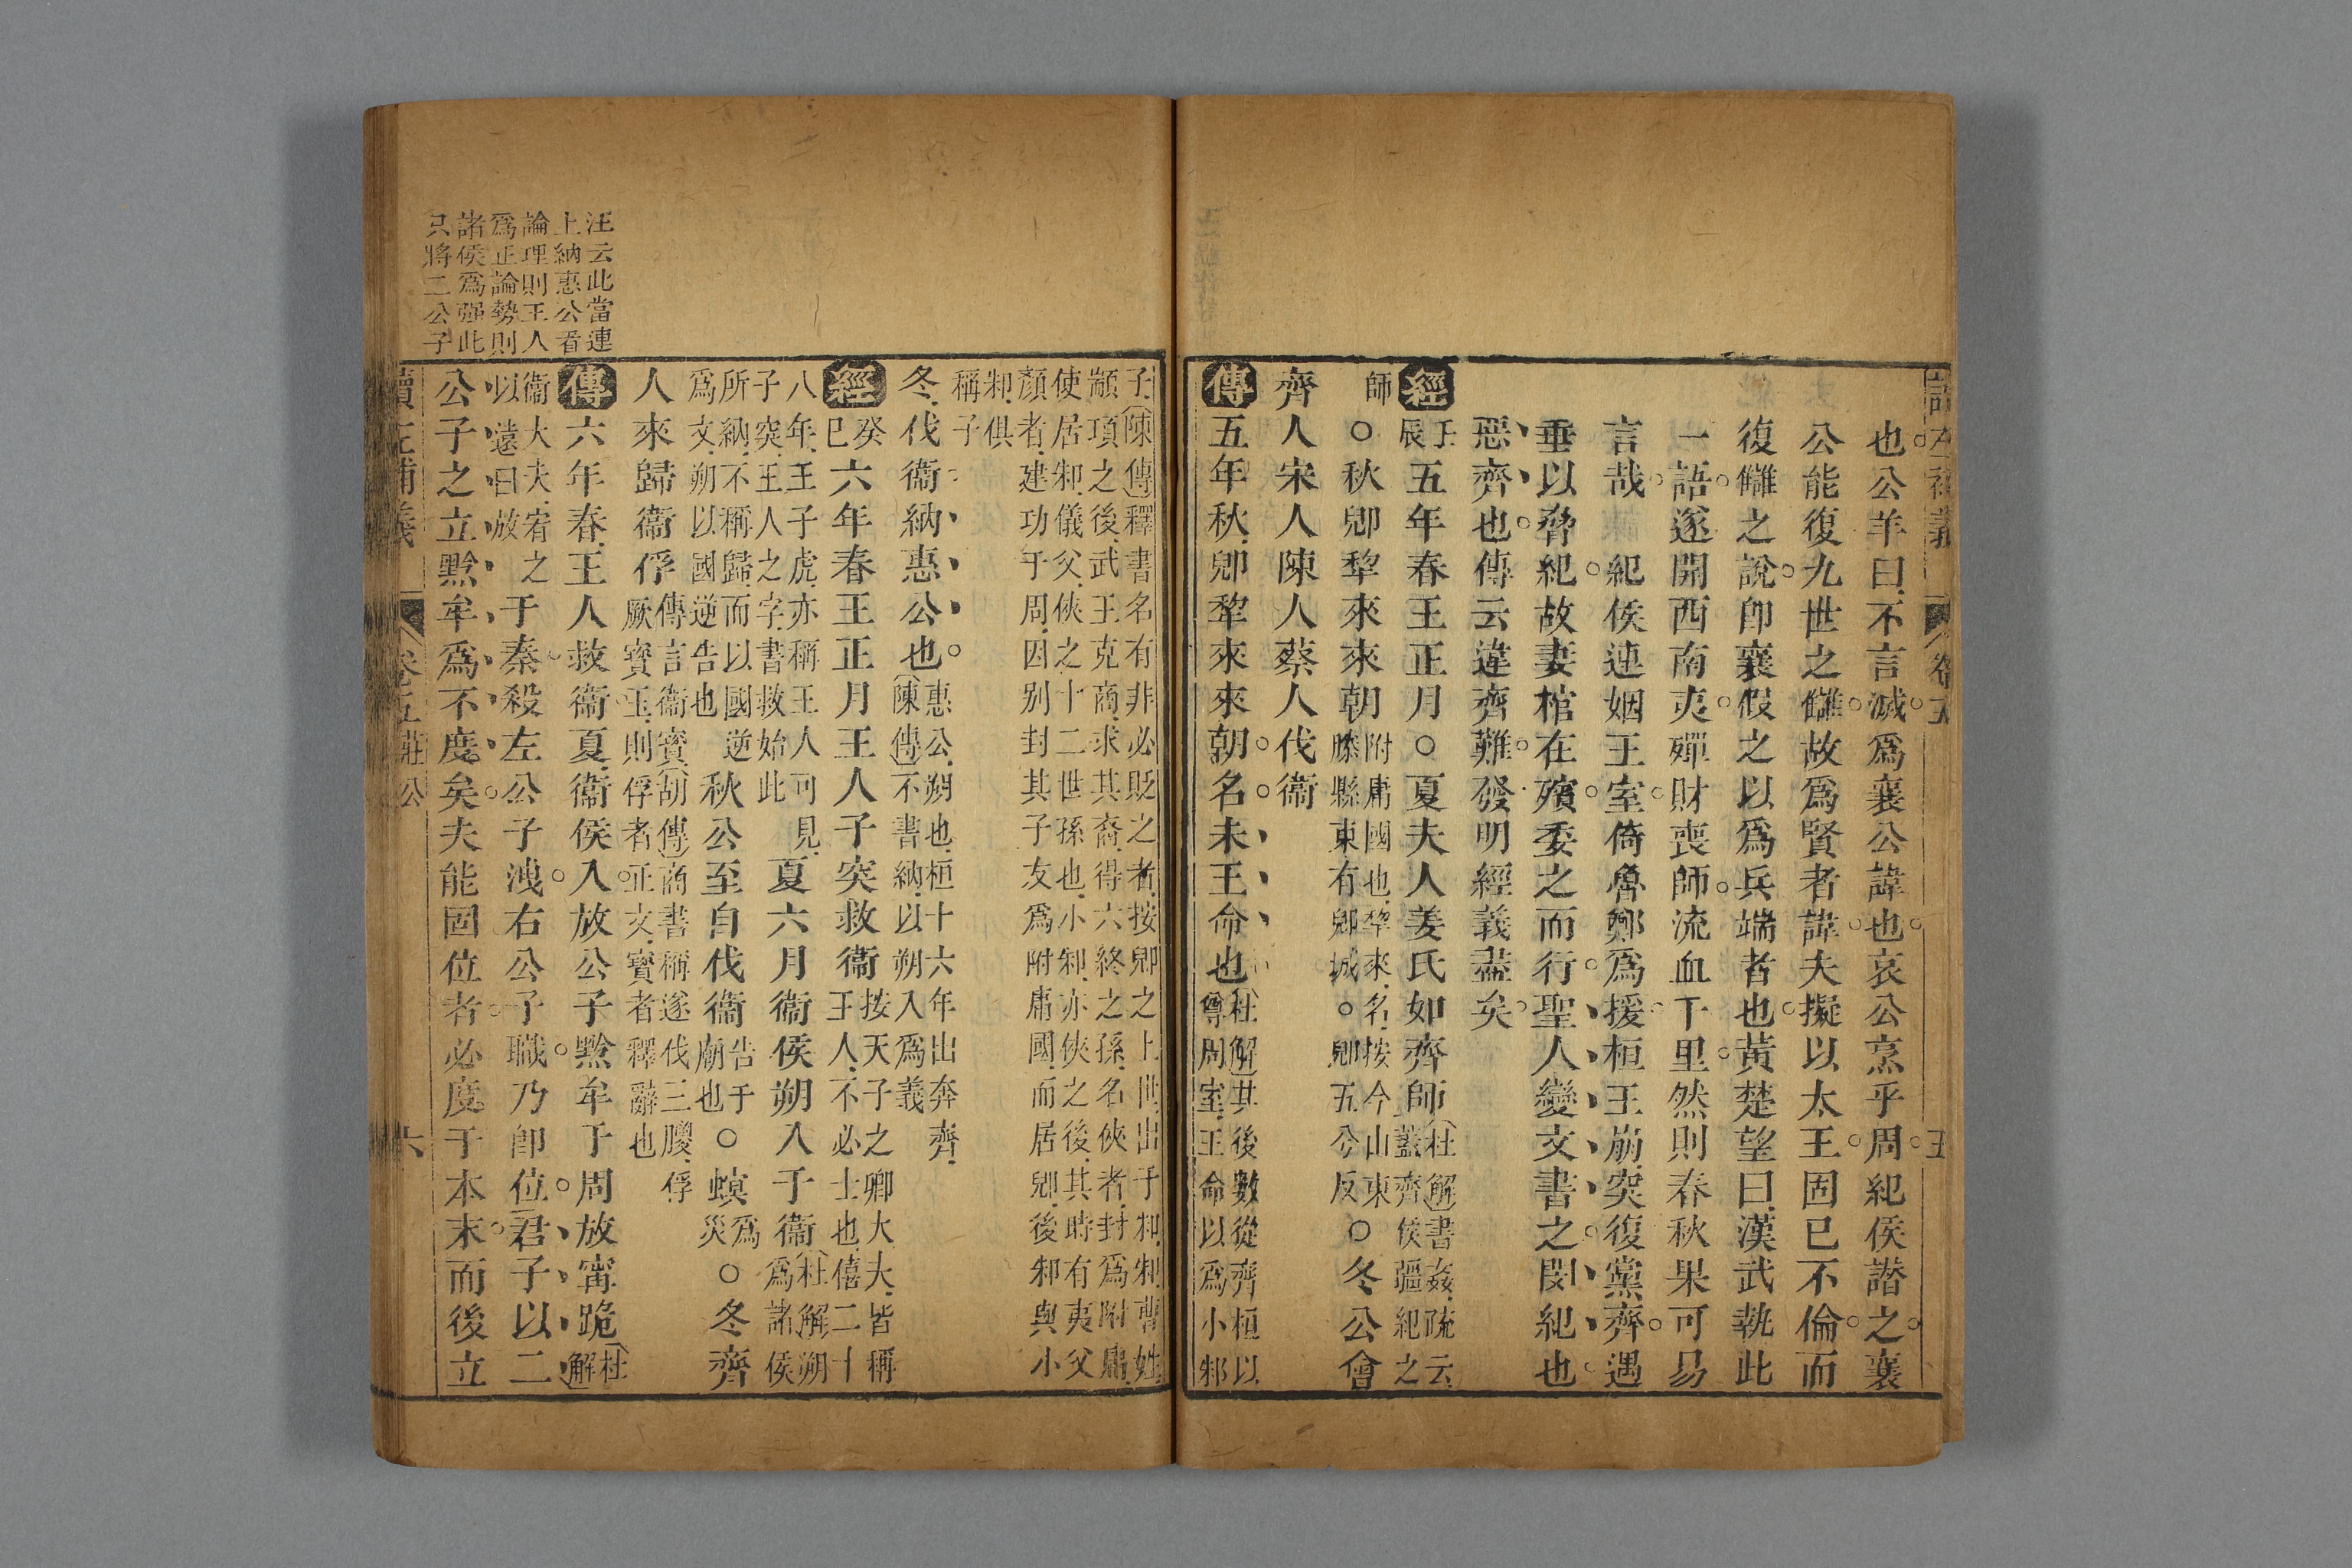 也公羊曰不言滅爲襄公諱也哀公烹乎周紀侯譖之襄
公能復九世之讎故爲賢者諱夫擬以太王固已不倫而
復讎之說卽襄假之以爲兵端者也黃楚望曰漢武執此
一語遂開西南夷殫財喪師流血千里然則春秋果可易
言哉　紀侯連姻王室倚魯鄭爲援桓王崩突復黨齊遇
垂以脅紀故妻棺在殯委之而行聖人變文書之閔紀也
惡齊也傳云違齊難發明經義盡矣
經壬辰五年春王正月○夏夫人姜氏如齊師杜解書姦疏云蓋齊侯疆紀之
師○秋郳犂來來朝附庸國也犂來名按今山東滕縣東有郳城○郳五兮反○冬公會
齊人宋人陳人蔡人伐衞
傳五年秋郳犂來來朝名未王命也杜解其後數從齊桓以尊周室王命以爲小邾
汪云此當連
上納惠公看
論理則王人
爲正論勢則
諸侯爲强此
只將二公子
子陳傳釋書名有非必貶之者按郳之上世出于邾邾曹姓
顓頊之後武王克商求其裔得六終之孫名俠者封爲附庸
使居邾儀父俠之十二世孫也小邾亦俠之後其時有夷父
顏者建功于周因别封其子友爲附庸國而居郳後邾與小
邾俱
稱子
冬伐衞納惠公也惠公朔也桓十六年出奔齊陳傳不書納以朔入爲義
經癸巳六年春王正月王人子突救衞按天子之卿大夫皆稱王人不必士也僖二十
八年王子虎亦稱王人可見子突王人之字書救始此夏六月衞侯朔入于衞杜解朔爲諸侯
所納不稱歸而以國逆爲文朔以國逆告也秋公至自伐衞告于廟也○螟爲災○冬齊
人來歸衞俘傳言衞寶胡傳商書稱遂伐三朡俘厥寶玉則俘者正文寶者釋辭也
傳六年春王人救衞夏衞侯入放公子黔牟于周放甯跪杜解
衞大夫宥之以遠曰放于秦殺左公子洩右公子職乃卽位君子以二
公子之立黔牟爲不度矣夫能固位者必度于本末而後立
讀左補義　卷五　莊公　六